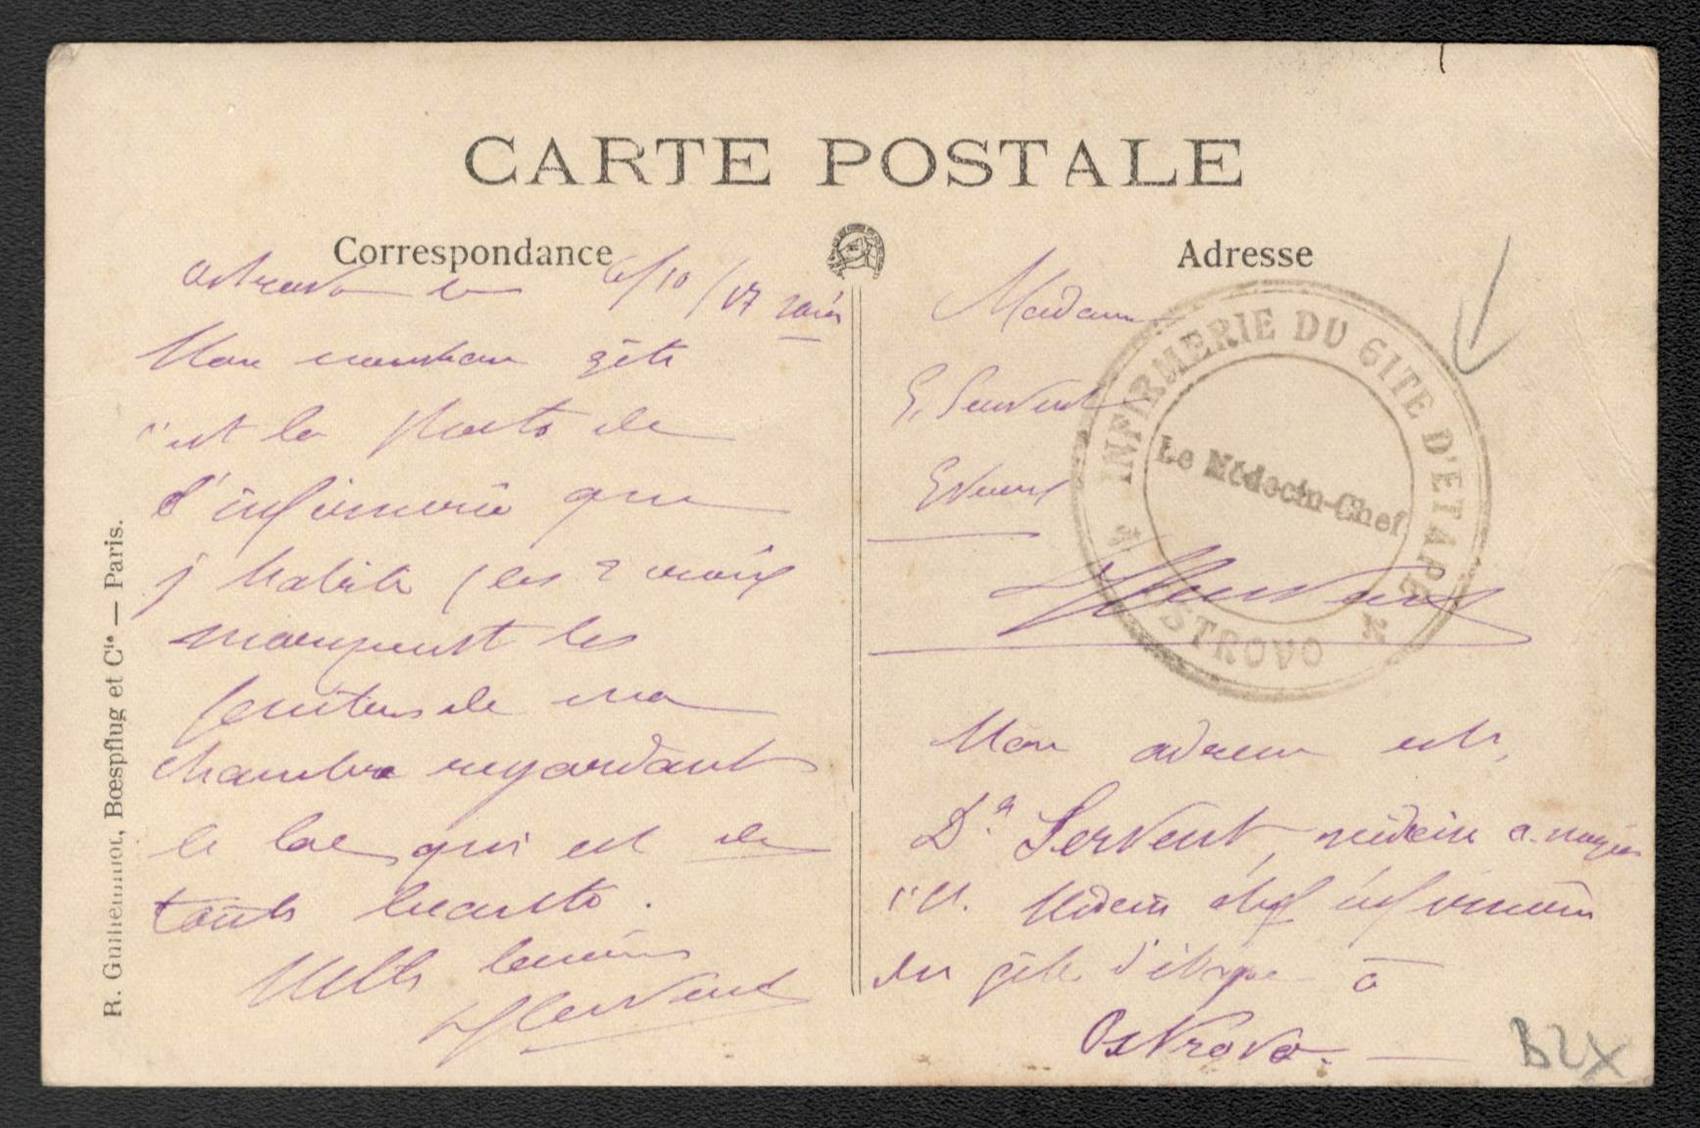 CARTE POSTALE
Correspondance
Adresse
Ostrovo le 6/10/17 soir
Mon nouveau gîte
c'est la photo de
l'infirmerie que
j'habite, les 2
marquent les
fenêtres de ma
chambre regardant
le lac qui est de
toute beauté.
Mille
Servent
Madame
E. Servent
INFIRMERIE DU GITE D'ETAPE
Le Médecin-Chef
OSTROVO
Servent
Mon adresse est,
Dr Servent, médecin a. major
1° cl. Médecin chef infirmerie
du gîte d'étape à
Ostrovo.
R. Guilleminot, Bœspflug et Cie — Paris.
B2X